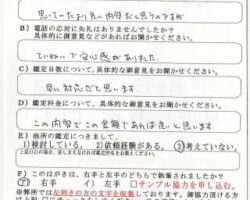 思ってたより良い内容だと思うのですが
B）電話の応対に失礼はありませんでしたか？
具体的に御意見などがあればお聞かせください。
ていねいで安心感がありました。
C）鑑定日数について、具体的な御意見をお聞かせください。
早い対応だと思います
D）鑑定料金について、具体的な御意見をお聞かせください。
この内容でこの金額であれば良いと思います
E）他所の鑑定につきまして、
1)検討している。 2)依頼経験がある。 ③考えていない
F）このはがきは、右手と左手のどちらで執筆されましたか？
ア）右手 イ）左手 □サンプル協力を申し込む。
※弊所では左利きの方の文字を収集しております。御協力頂ける方